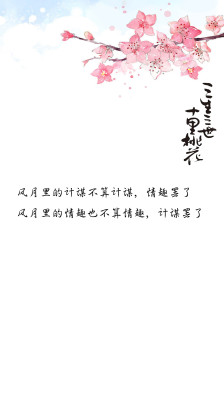 三生三世
十里桃花
风月里的计谋不算计谋，情趣罢了
风月里的情趣也不算情趣，计谋罢了